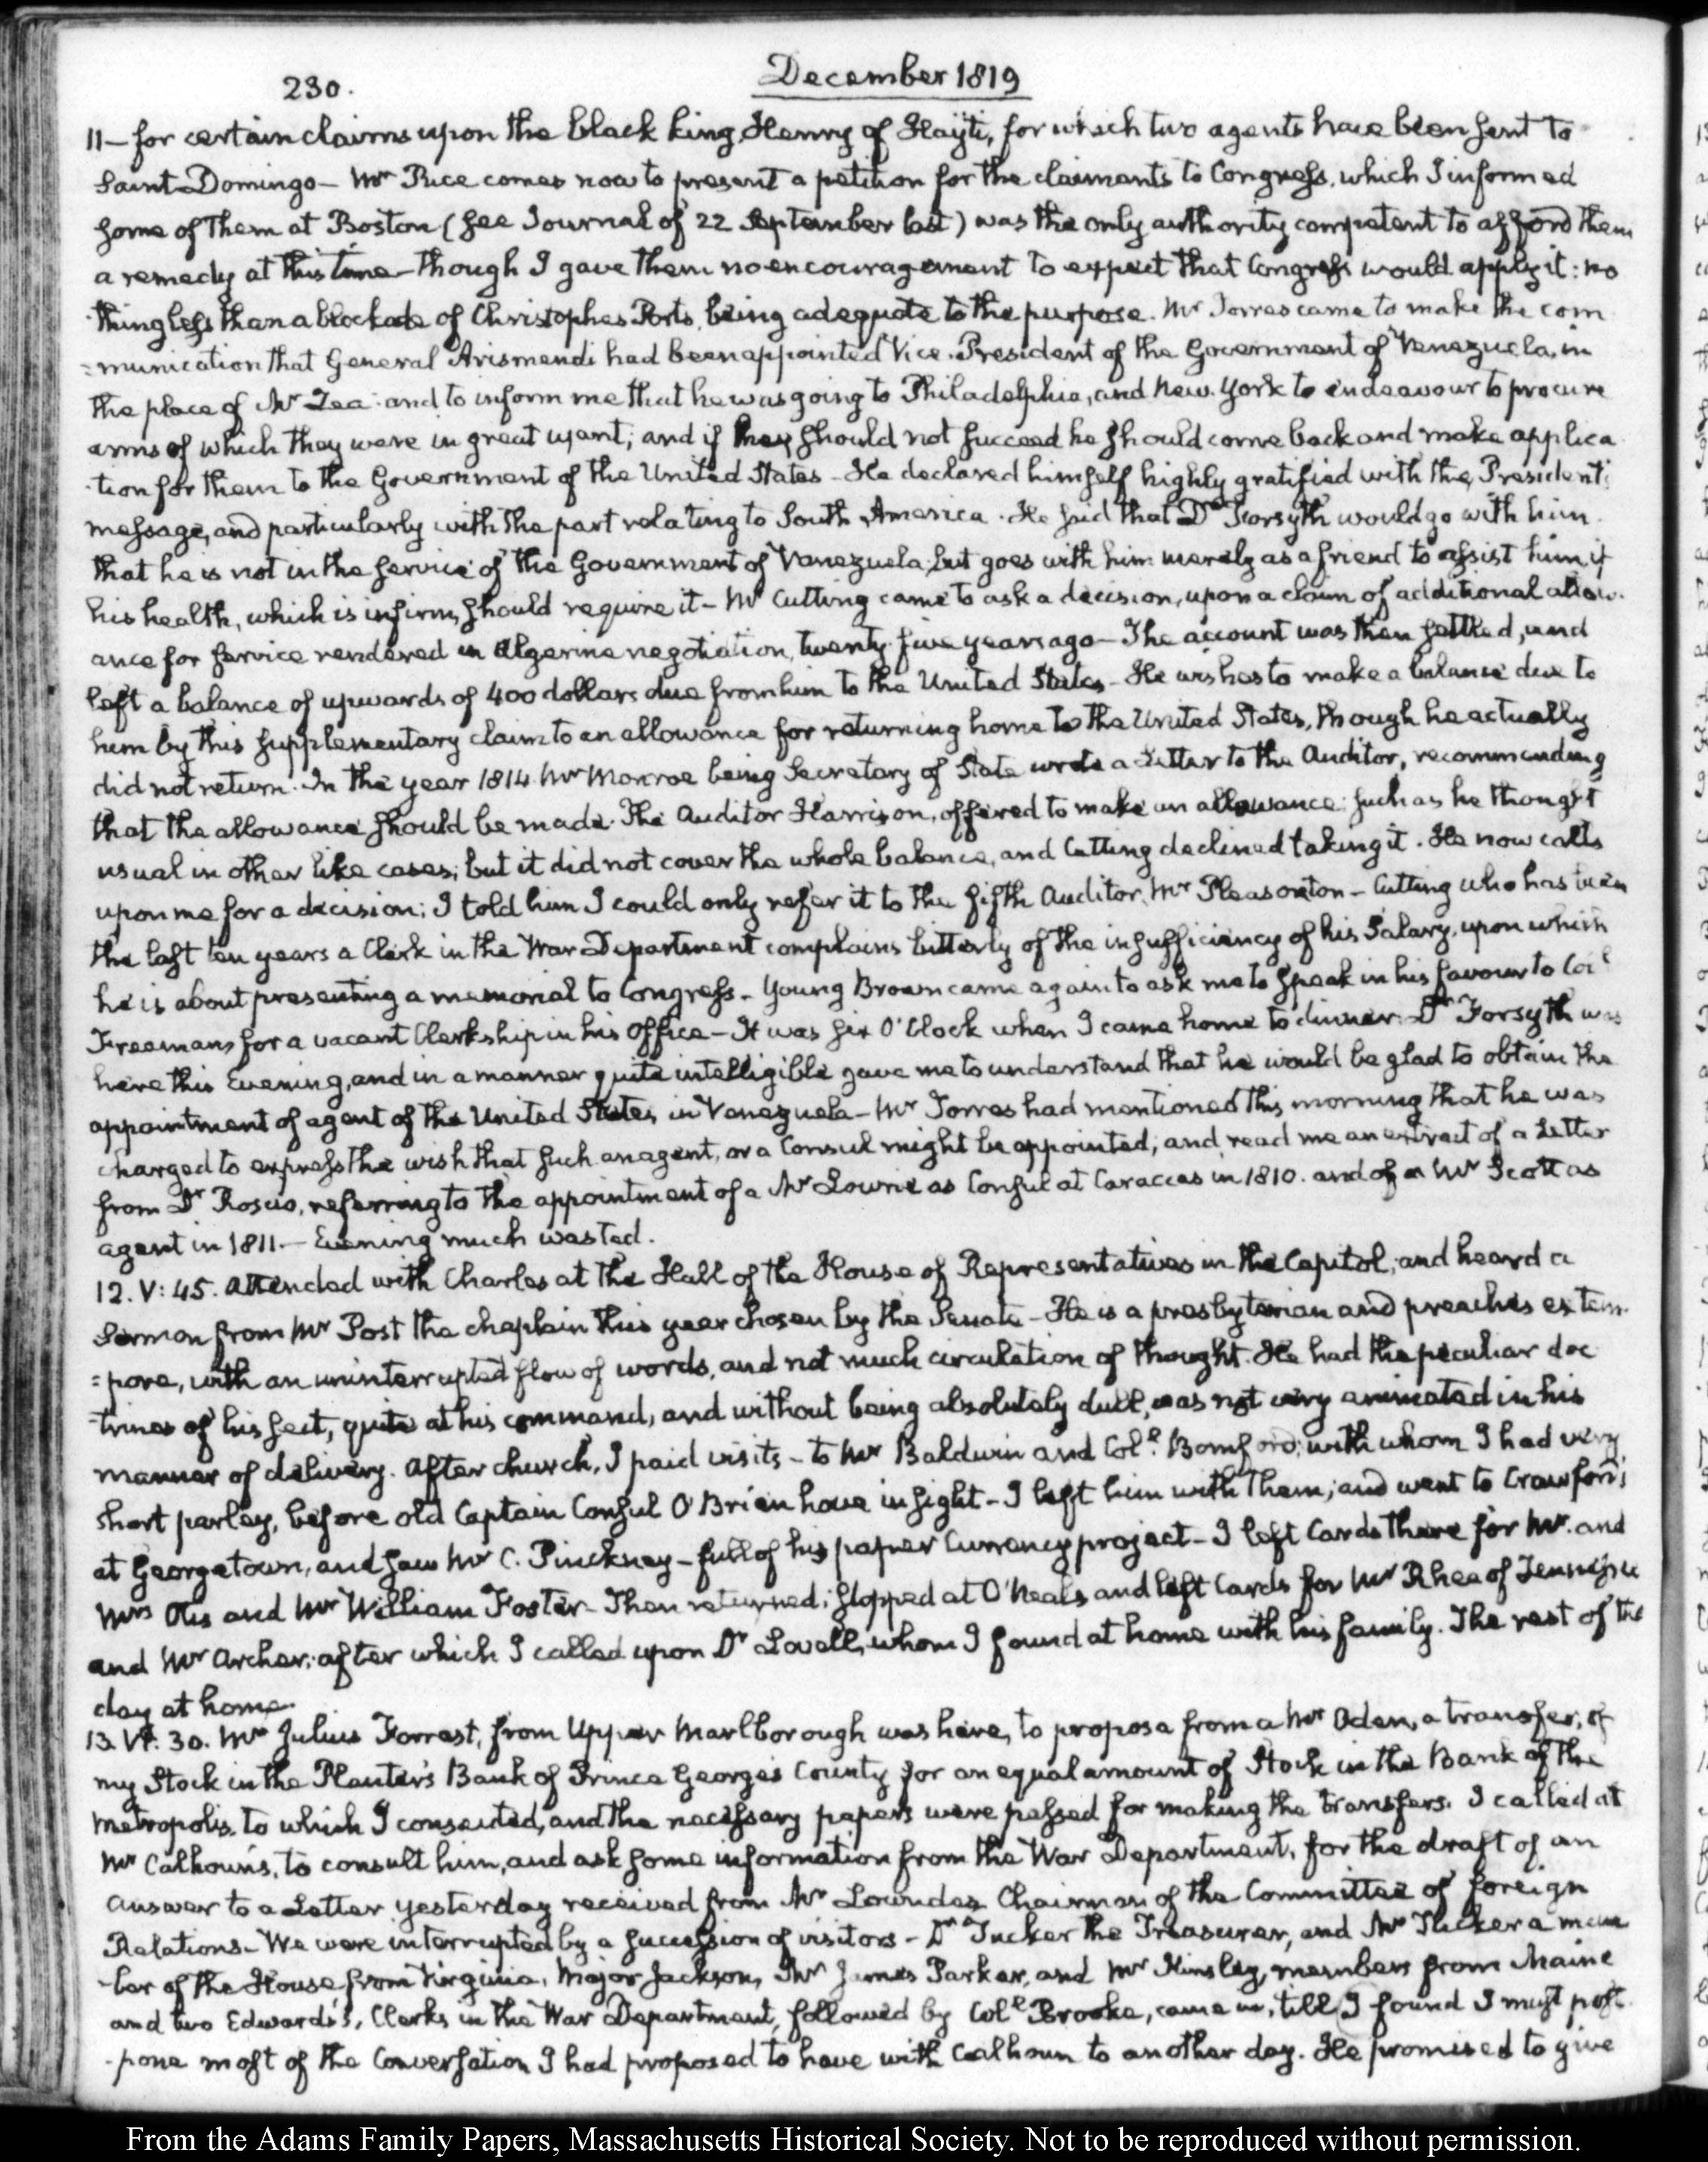 230.
December 1819
11— for certain claims upon the black king, Henry of Hayti, for which two agents have been sent to
Saint Domingo— Mr Rice comes now to present a petition for the claimants to Congress, which I informed
some of them at Boston (see Journal of 22 September last) was the only authority competent to afford them
a remedy at this time— though I gave them no encouragement to expect that Congress would apply it: no
thing less than a blockade of Christophes Ports, being adequate to the purpose. Mr Torres came to make the com
=munication that General Arismendi had been appointed Vice-President of the Government of Venezuela, in
the place of Mr Zea: and to inform me that he was going to Philadelphia, and New-York to endeavour to procure
arms of which they were in great want; and if they should not succeed he should come back and make applica
-tion for them to the Government of the United States— He declared himself highly gratified with the President's
message, and particularly with the part relating to South America. He said that Dr Forsyth would go with him.
that he is not in the service of the Government of Venezuela, but goes with him merely as a friend to assist him, if
his health, which is infirm, should require it— Mr Cutting came to ask a decision, upon a claim of additional allow-
ance for service rendered in Algerine negotiation, twenty-five years ago— The account was then settled, and
left a balance of upwards of 400 dollars due from him to the United States— He wishes to make a balance due to
him by this supplementary claim to an allowance for returning home to the United States, though he actually
did not return. In the year 1814 Mr Monroe being Secretary of State wrote a Letter to the Auditor, recommending
that the allowance should be made. The Auditor Harrison, offered to make an allowance such as he thought
usual in other like cases; but it did not cover the whole balance, and Cutting declined taking it. He now calls
upon me for a decision; I told him I could only refer it to the fifth Auditor, Mr Pleasonton— Cutting who has been
the last ten years a Clerk in the War Department complains bitterly of the insufficiency of his Salary, upon which
he is about presenting a memorial to Congress— Young Brown came again to ask me to speak in his favour to Col
Freeman, for a vacant Clerkship in his Office— It was six O'Clock when I came home to dinner. Dr Forsyth was
here this Evening, and in a manner quite intelligible gave me to understand that he would be glad to obtain the
appointment of agent of the United States in Venezuela— Mr Torres had mentioned this morning that he was
charged to express the wish that such an agent, or a Consul might be appointed; and read me an extract of a Letter
from Dr Roscio, referring to the appointment of a Mr Lowne as Consul at Caraccas in 1810. and of a Mr Scott as
agent in 1811.— Evening much wasted.
12. V: 45. Attended with Charles at the Hall of the House of Representatives in the Capitol, and heard a
Sermon from Mr Post the chaplain this year chosen by the Senate— He is a presbyterian and preaches extem-
=pore, with an uninterrupted flow of words, and not much circulation of thought. He had the peculiar doc
-trines of his sect, quite at his command, and without being absolutely dull, was not very animated in his
manner of delivery. After church, I paid visits— to Mr Baldwin and Coll. Bomford; with whom I had very
short parley, before old Captain Consul O'Brien hove in sight— I left him with them; and went to Crawford's
at Georgetown, and saw Mr C. Pinckney— full of his paper Currency project— I left Cards there for Mr. and
Mrs Otis and Mr William Foster— Then returned; stopped at O'Neals and left Cards for Mr Rhea of Tennessee
and Mr Archer; after which I called upon Dr Lovell, whom I found at home with his family. The rest of the
day at home.
13. VI: 30. Mr Julius Forrest, from Upper Marlborough was here, to propose from a Mr Oden, a transfer, of
my Stock in the Planter's Bank of Prince George's County for an equal amount of Stock in the Bank of the
Metropolis, to which I consented, and the necessary papers were passed for making the transfers. I called at
Mr Calhoun's, to consult him, and ask some information from the War Department, for the draft of an
answer to a Letter yesterday received from Mr Lowndes Chairman of the Committee of foreign
Relations— We were interrupted by a succession of visitors— Dr Tucker the Treasurer, and Mr Tucker a mem
-ber of the House from Virginia, Major Jackson, Mr James Parker, and Mr Kinsley, members from Maine
and two Edwards's, Clerks in the War Department, followed by Coll Brooke, came in, till I found I must post-
-pone most of the Conversation I had proposed to have with Calhoun to another day. He promised to give
From the Adams Family Papers, Massachusetts Historical Society. Not to be reproduced without permission.